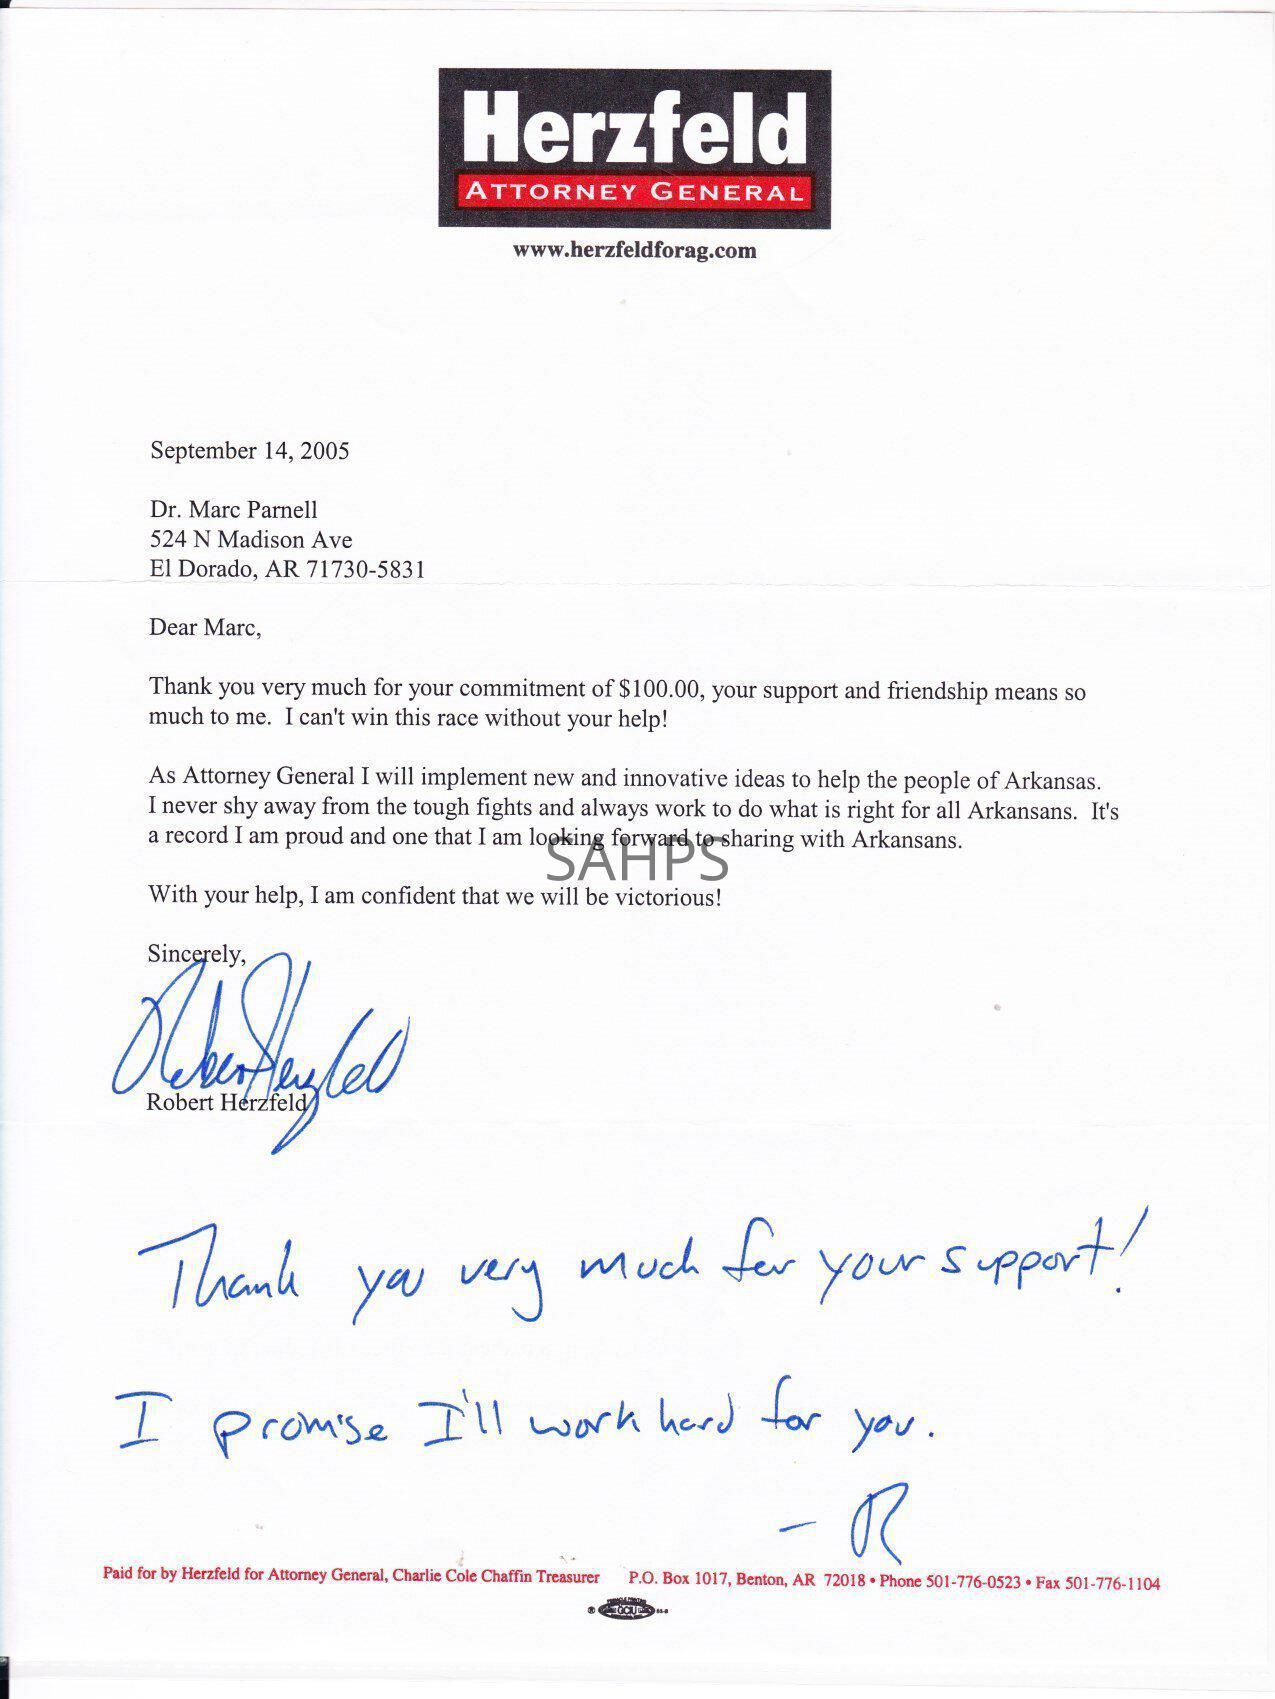 Herzfeld
ATTORNEY GENERAL
www.herzfeldforag.com
September 14, 2005
Dr. Marc Parnell
524 N Madison Ave
El Dorado, AR 71730-5831
Dear Marc,
Thank you very much for your commitment of $100.00, your support and friendship means so
much to me.  I can't win this race without your help!
As Attorney General I will implement new and innovative ideas to help the people of Arkansas.
I never shy away from the tough fights and always work to do what is right for all Arkansans.  It's
a record I am proud and one that I am looking forward to sharing with Arkansans.
SAHPS
With your help, I am confident that we will be victorious!
Sincerely,
Robert Herzfeld
Robert Herzfeld
Thank you very much for your support!
I promise I'll work hard for you.
- R
Paid for by Herzfeld for Attorney General, Charlie Cole Chaffin Treasurer P.O. Box 1017, Benton, AR 72018 • Phone 501-776-0523 • Fax 501-776-1104
® GCIU